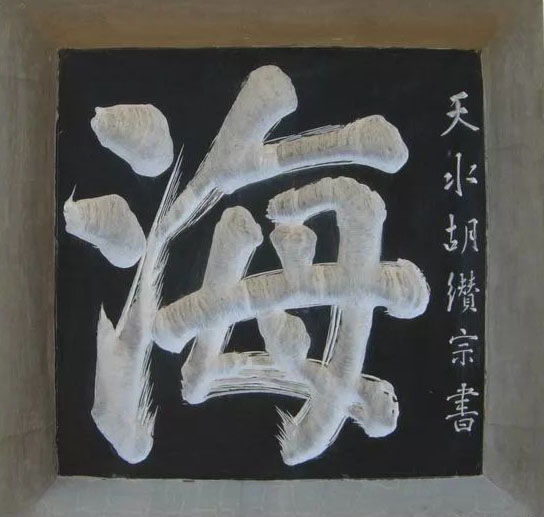 海
天水胡纘宗書